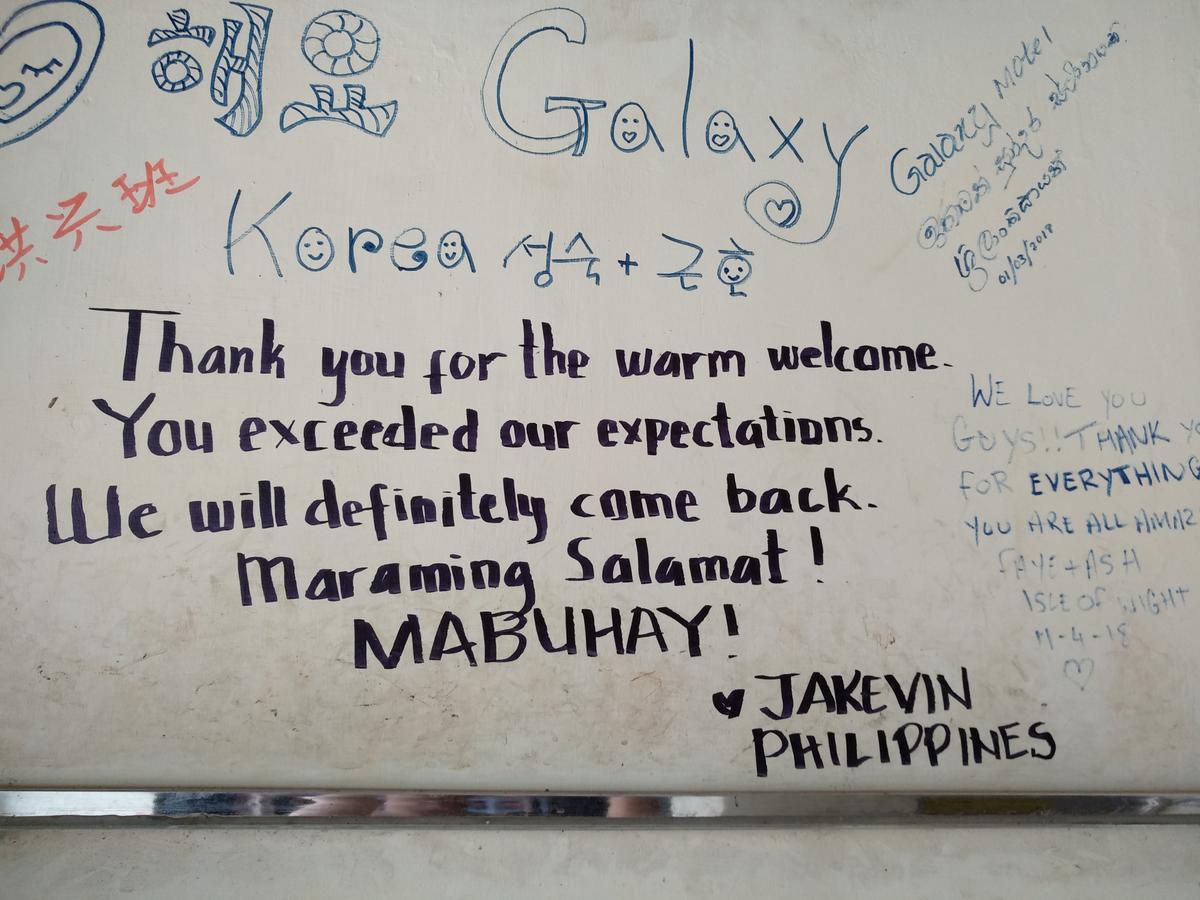 해요 Galaxy
Korea 성숙 + 근호
班
Galaxy Motel
01/03/2018
Thank you for the warm welcome.
You exceeded our expectations.
We will definitely come back.
Maraming Salamat!
MABUHAY!
JAKEVIN
PHILIPPINES
WE LOVE YOU
GUYS!! THANK YO
FOR EVERYTHING
YOU ARE ALL AMAZ
FAYE + ASH
ISLE OF WIGHT
11-4-18